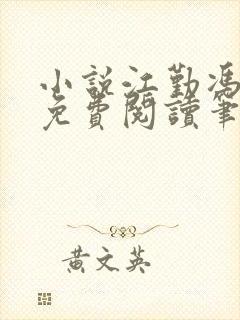 小說江勤馮
免費閱讀筆
黃文英